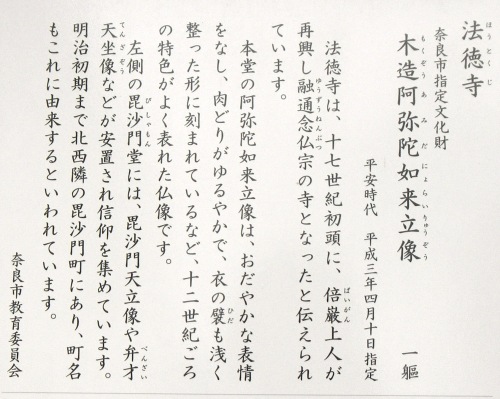 法徳寺
奈良市指定文化財
木造阿弥陀如来立像　一軀
平安時代　平成三年四月十日指定
法徳寺は、十七世紀初頭に、倍巌上人が
再興し融通念仏宗の寺となったと伝えられ
ています。
本堂の阿弥陀如来立像は、おだやかな表情
をなし、肉どりがゆるやかで、衣の襞も浅く
整った形に刻まれているなど、十二世紀ごろ
の特色がよく表れた仏像です。
左側の毘沙門堂には、毘沙門天立像や弁才
天坐像などが安置され信仰を集めています。
明治初期まで北西隣の毘沙門町にあり、町名
もこれに由来するといわれています。
奈良市教育委員会